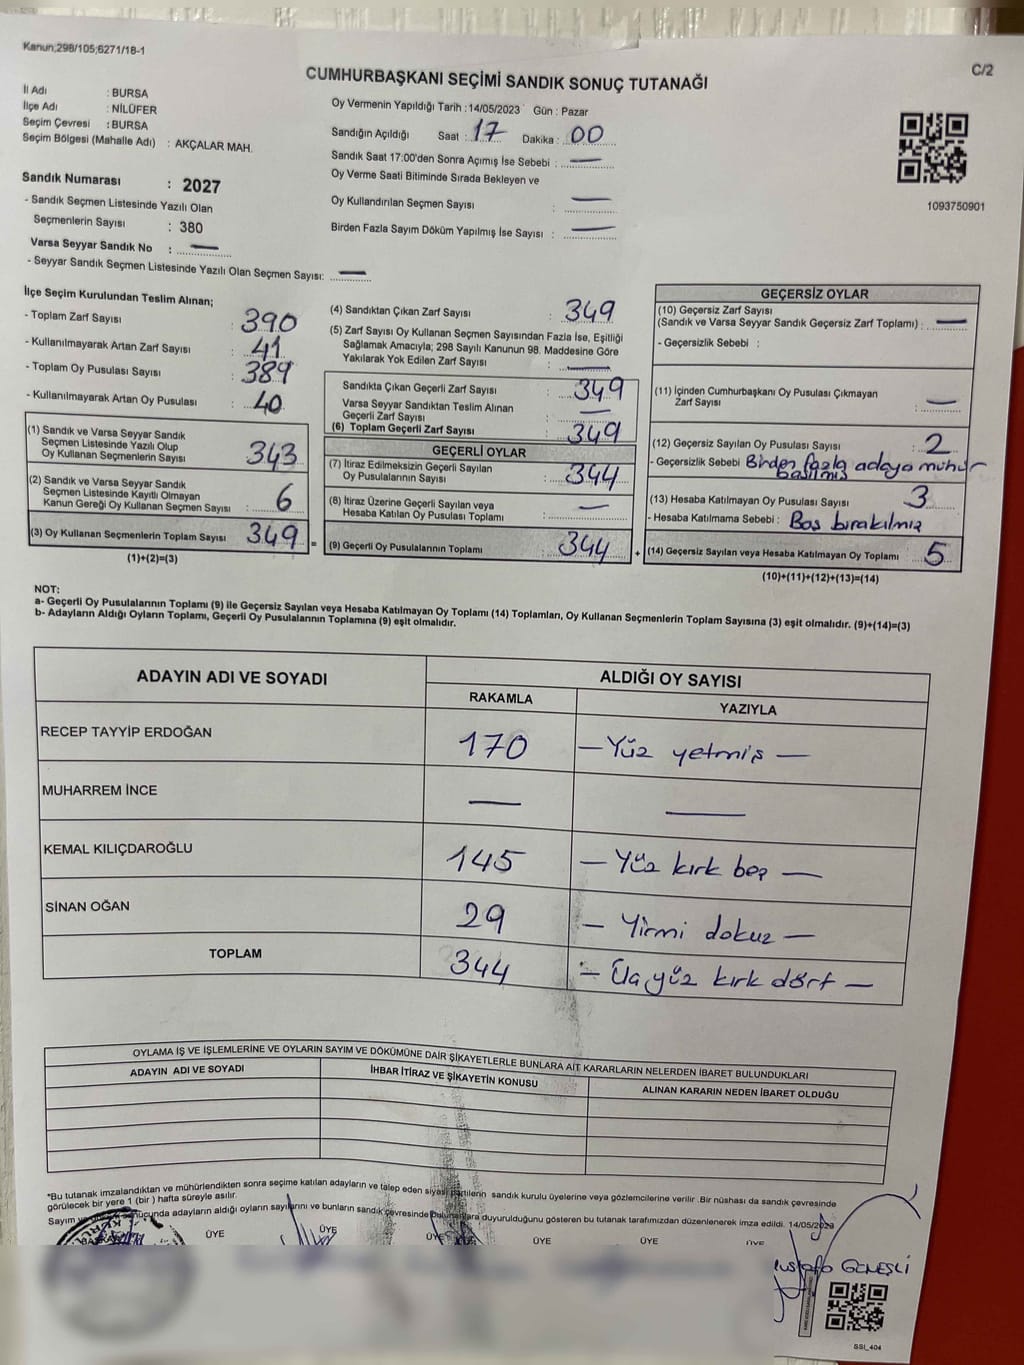 Kanun;298/105;6271/18-1
C/2
CUMHURBAŞKANI SEÇİMİ SANDIK SONUÇ TUTANAĞI
İl Adı : BURSA
İlçe Adı : NİLÜFER
Seçim Çevresi : BURSA
Seçim Bölgesi (Mahalle Adı) : AKÇALAR MAH.
Sandık Numarası : 2027
- Sandık Seçmen Listesinde Yazılı Olan
Seçmenlerin Sayısı : 380
Varsa Seyyar Sandık No : —
- Seyyar Sandık Seçmen Listesinde Yazılı Olan Seçmen Sayısı: —
Oy Vermenin Yapıldığı Tarih : 14/05/2023 Gün : Pazar
Sandığın Açıldığı Saat : 17 Dakika : 00
Sandık Saat 17:00'den Sonra Açımış İse Sebebi : —
Oy Verme Saati Bitiminde Sırada Bekleyen ve
Oy Kullandırılan Seçmen Sayısı : —
Birden Fazla Sayım Döküm Yapılmış İse Sayısı : —
1093750901
İlçe Seçim Kurulundan Teslim Alınan;
- Toplam Zarf Sayısı : 390
- Kullanılmayarak Artan Zarf Sayısı : 41
- Toplam Oy Pusulası Sayısı : 389
- Kullanılmayarak Artan Oy Pusulası : 40
(1) Sandık ve Varsa Seyyar Sandık
Seçmen Listesinde Yazılı Olup
Oy Kullanan Seçmenlerin Sayısı : 343
(2) Sandık ve Varsa Seyyar Sandık
Seçmen Listesinde Kayıtlı Olmayan
Kanun Gereği Oy Kullanan Seçmen Sayısı : 6
(3) Oy Kullanan Seçmenlerin Toplam Sayısı : 349 =
(1)+(2)=(3)
(4) Sandıktan Çıkan Zarf Sayısı : 349
(5) Zarf Sayısı Oy Kullanan Seçmen Sayısından Fazla İse, Eşitliği
Sağlamak Amacıyla; 298 Sayılı Kanunun 98. Maddesine Göre
Yakılarak Yok Edilen Zarf Sayısı : —
Sandıkta Çıkan Geçerli Zarf Sayısı : 349
Varsa Seyyar Sandıktan Teslim Alınan
Geçerli Zarf Sayısı : —
(6) Toplam Geçerli Zarf Sayısı : 349
GEÇERLİ OYLAR
(7) İtiraz Edilmeksizin Geçerli Sayılan
Oy Pusulalarının Sayısı : 344
(8) İtiraz Üzerine Geçerli Sayılan veya
Hesaba Katılan Oy Pusulası Toplamı : —
(9) Geçerli Oy Pusulalarının Toplamı : 344 +
GEÇERSİZ OYLAR
(10) Geçersiz Zarf Sayısı
(Sandık ve Varsa Seyyar Sandık Geçersiz Zarf Toplamı) : —
- Geçersizlik Sebebi :
(11) İçinden Cumhurbaşkanı Oy Pusulası Çıkmayan
Zarf Sayısı : —
(12) Geçersiz Sayılan Oy Pusulası Sayısı : 2
- Geçersizlik Sebebi Birden fazla adaya mühür
basılmış
(13) Hesaba Katılmayan Oy Pusulası Sayısı 3
- Hesaba Katılmama Sebebi : Boş bırakılmış
(14) Geçersiz Sayılan veya Hesaba Katılmayan Oy Toplamı : 5
(10)+(11)+(12)+(13)=(14)
NOT:
a- Geçerli Oy Pusulalarının Toplamı (9) ile Geçersiz Sayılan veya Hesaba Katılmayan Oy Toplamı (14) Toplamları, Oy Kullanan Seçmenlerin Toplam Sayısına (3) eşit olmalıdır. (9)+(14)=(3)
b- Adayların Aldığı Oyların Toplamı, Geçerli Oy Pusulalarının Toplamına (9) eşit olmalıdır.
ADAYIN ADI VE SOYADI ALDIĞI OY SAYISI
RAKAMLA YAZIYLA
RECEP TAYYİP ERDOĞAN 170 — Yüz yetmiş —
MUHARREM İNCE — —
KEMAL KILIÇDAROĞLU 145 — Yüz kırk beş —
SİNAN OĞAN 29 — Yirmi dokuz —
TOPLAM 344 — Üç yüz kırk dört —
OYLAMA İŞ VE İŞLEMLERİNE VE OYLARIN SAYIM VE DÖKÜMÜNE DAİR ŞİKAYETLERLE BUNLARA AİT KARARLARIN NELERDEN İBARET BULUNDUKLARI
ADAYIN ADI VE SOYADI İHBAR İTİRAZ VE ŞİKAYETİN KONUSU ALINAN KARARIN NEDEN İBARET OLDUĞU
*Bu tutanak imzalandıktan ve mühürlendikten sonra seçime katılan adayların ve talep eden siyasi partilerin sandık kurulu üyelerine veya gözlemcilerine verilir .Bir nüshası da sandık çevresinde
görülecek bir yere 1 (bir ) hafta süreyle asılır.
Sayım ve sonucunda adayların aldığı oyların sayılarını ve bunların sandık çevresinde bulunanlara duyurulduğunu gösteren bu tutanak tarafımızdan düzenlenerek imza edildi. 14/05/2023
ÜYE ÜYE ÜYE ÜYE ÜYE ÜYE
GÜNEŞLİ
SSI_404